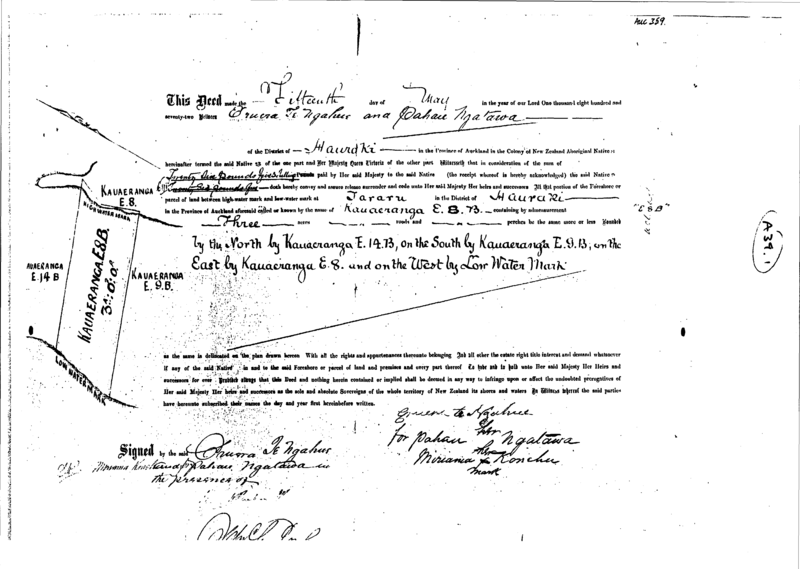 AUC 359.
This Deed made the Fifteenth day of May in the year of our Lord One thousand eight hundred and
seventy-two Between Eruera Te Ngahue and Pahau Ngatawa
of the District of Hauraki in the Province of Auckland in the Colony of New Zealand Aboriginal Native s
hereinafter termed the said Native s of the one part and Her Majesty Queen Victoria of the other part Witnesseth that in consideration of the sum of
paid by Her said Majesty to the said Native (the receipt whereof is hereby acknowledged) the said Native s
doth hereby convey and assure release surrender and cede unto Her said Majesty Her Heirs and successors All that portion of the Foreshore or
parcel of land between high-water mark and low-water mark at Tararu in the District of Hauraki
in the Province of Auckland aforesaid called or known by the name of Kauaeranga E. 8. B. containing by admeasurement
Three acres roods and perches be the same more or less Bounded
by the North by Kauaeranga E. 14. B, on the South by Kauaeranga E. 9. B; on the
East by Kauaeranga E. 8. and on the West by Low Water Mark
KAUAERANGA
E. 8.
HIGH WATER MARK
KAUAERANGA. E8B.
3a: 0r: 0p
AUAERANGA
E. 14 B
KAUAERANGA
E. 9. B.
LOW WATER MARK
"E8B"
A34.1
as the same is delineated on the plan drawn hereon With all the rights and appurtenances thereunto belonging And all other the estate right title interest and demand whatsoever
if any of the said Native in and to the said Foreshore or parcel of land and premises and every part thereof To hold unto Her said Majesty Her Heirs and
successors for ever Provided always that this Deed and nothing herein contained or implied shall be deemed in any way to infringe upon or affect the undoubted prerogatives of
Her said Majesty Her heirs and successors as the sole and absolute Sovereigns of the whole territory of New Zealand its shores and waters In Witness whereof the said parties
have hereunto subscribed their names the day and year first hereinbefore written.
Eruera te Ngahue
for Pahau Ngatawa
Miriama Konehu
her
mark
Signed by the said Eruera Te Ngahue
Miriama for Pahau Ngatawa in
the presence of